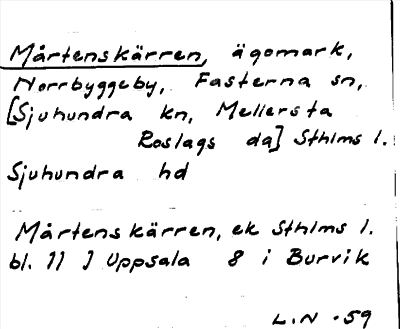 Mårtenskärren, ägomark,
Norrbyggeby, Fasterna sn,
[Sjuhundra kn, Mellersta
Roslags da] Sthlms l.
Sjuhundra hd
Mårtenskärren, ek Sthlms l.
bl. 11 J Uppsala 8 i Burvik
L.N -59